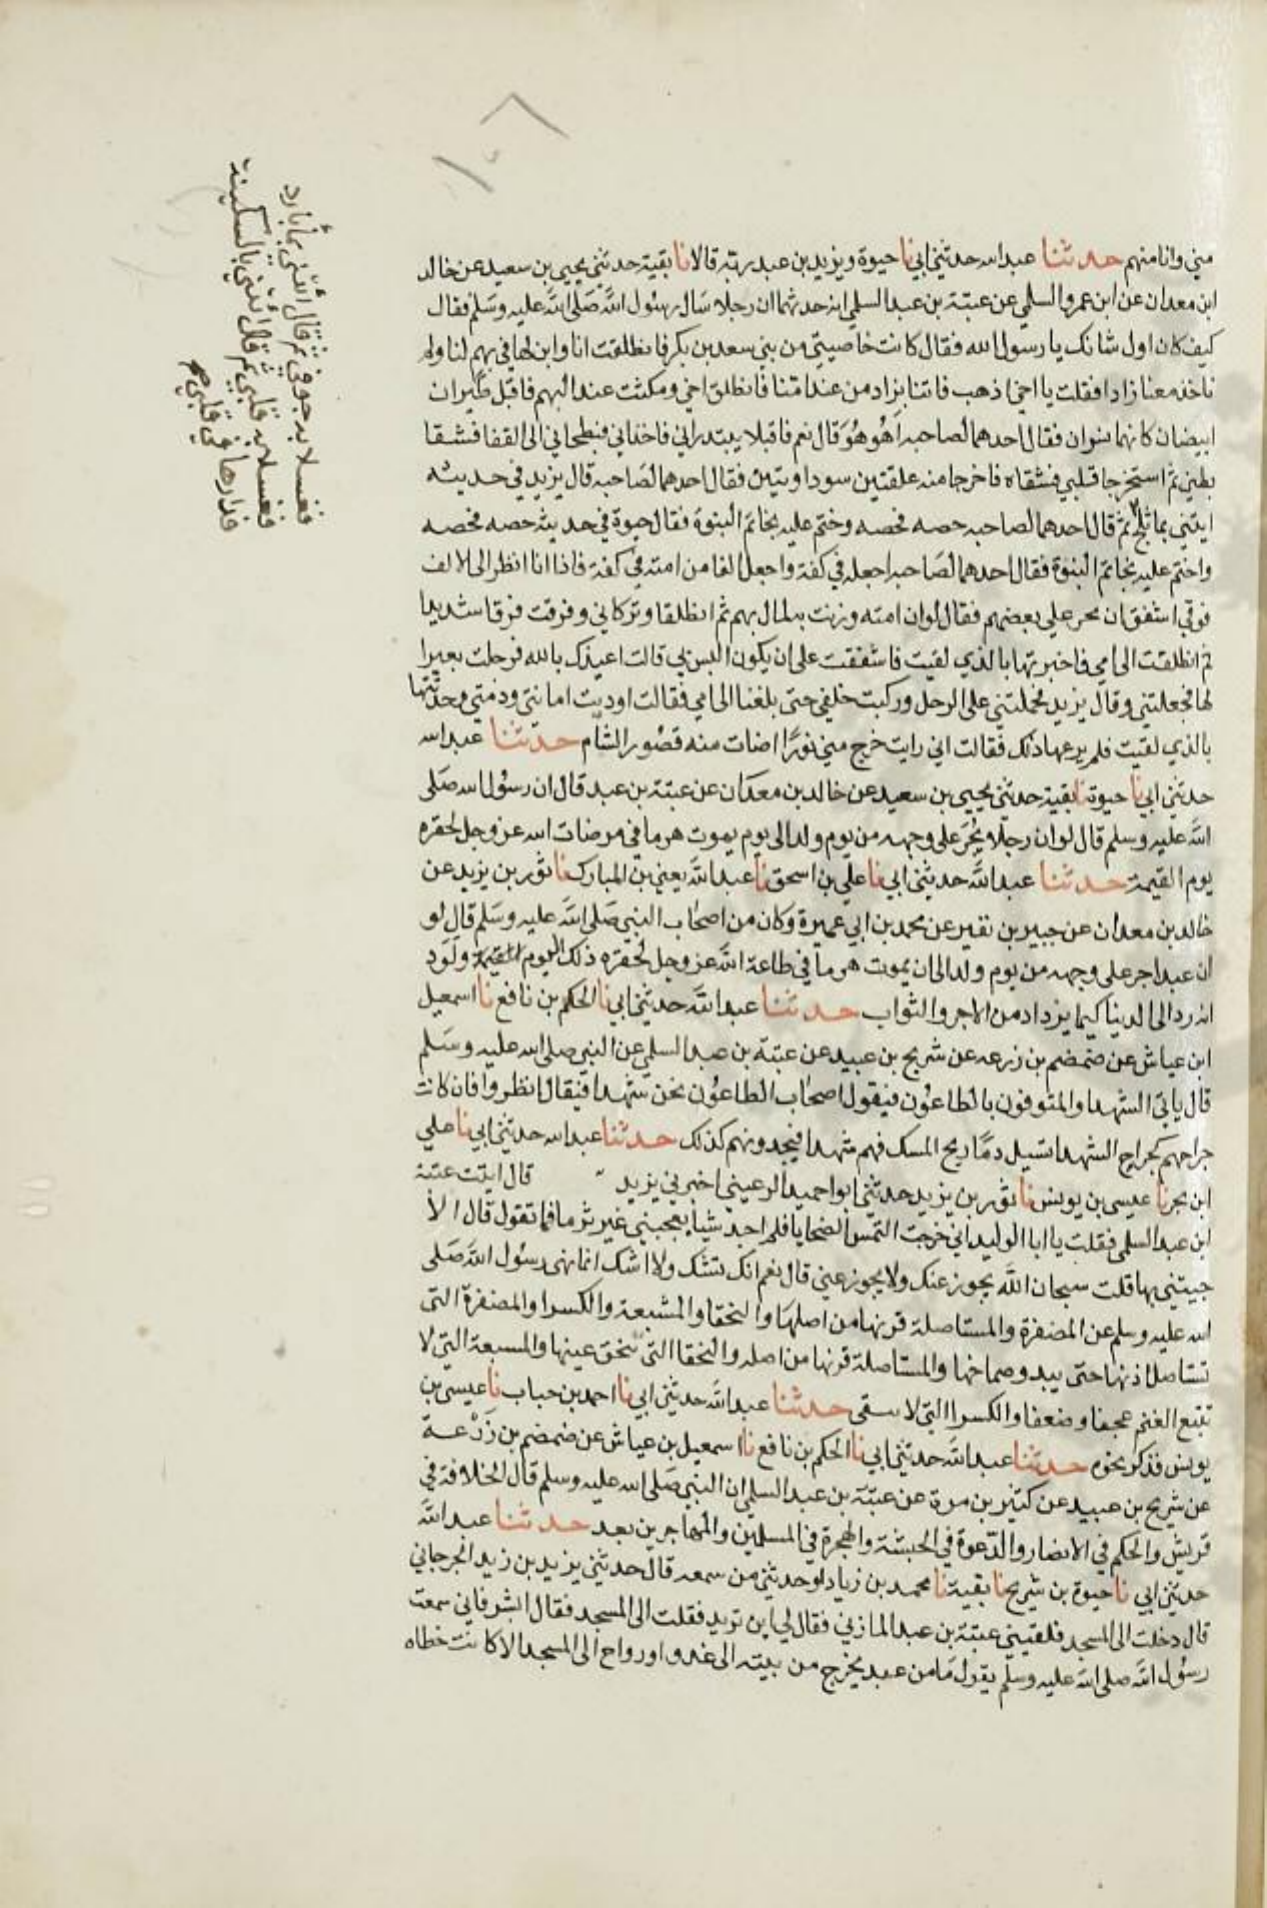 مني وانا منهم حدثنا عبد الله حدثني ابي نا حيوة ويزيد بن عبد ربه قالا نا بقية حدثني يحيى بن سعيد عن خالد
ابن معدان عن ابن عمرو السلمي عن عتبة بن عبد السلمي انه حدثهم ان رجلا سال رسول الله صلى الله عليه وسلم فقال
كيف كان اول شانك يا رسول الله فقال كانت حاضنتي من بني سعد بن بكر فانطلقت انا وابن لها في بهم لنا ولم
ناخذ معنا زادا فقلت يا اخي اذهب فاتنا بزاد من عند امنا فانطلق اخي ومكثت عند البهم فاقبل طيران
ابيضان كانهما نسران فقال احدهما لصاحبه اهو هو قال نعم فاقبلا يبتدراني فاخذاني فبطحاني الى القفا فشقا
بطني ثم استخرجا قلبي فشقاه فاخرجا منه علقتين سوداوتين فقال احدهما لصاحبه قال يزيد في حديثه
ايتني بماء ثلج ثم قال احدهما لصاحبه حصه فحصه وختم عليه بخاتم النبوة فقال حيوة في حديثه حصه فحصه
واختم عليه بخاتم النبوة فقال احدهما لصاحبه اجعله في كفة واجعل الفا من امته في كفة فاذا انا انظر الى الالف
فوقي اشفق ان يخر علي بعضهم فقال لو ان امته وزنت به لمال بهم ثم انطلقا وتركاني وفرقت فرقا شديدا
ثم انطلقت الى امي فاخبرتها بالذي لقيت فاشفقت علي ان يكون البس بي قالت اعيذك بالله فرحلت بعيرا
لها فجعلتني وقال يزيد فحملتني على الرحل وركبت خلفي حتى بلغنا الى امي فقالت اوديت امانتي وذمتي وحدثتها
بالذي لقيت فلم يرعها ذلك فقالت اني رايت خرج مني نورا اضات منه قصور الشام حدثنا عبد الله
حدثني ابي نا حيوة نا بقية حدثني يحيى بن سعيد عن خالد بن معدان عن عتبة بن عبد قال ان رسول الله صلى
الله عليه وسلم قال لو ان رجلا يجر على وجهه من يوم ولد الى يوم يموت هرما في مرضات الله عز وجل لحقره
يوم القيمة حدثنا عبد الله حدثني ابي نا علي بن اسحق نا عبد الله يعني بن المبارك نا ثور بن يزيد عن
خالد بن معدان عن جبير بن نفير عن محمد بن ابي عميرة وكان من اصحاب النبي صلى الله عليه وسلم قال لو
ان عبدا جر على وجهه من يوم ولد الى ان يموت هرما في طاعة الله عز وجل لحقره ذلك اليوم القيمة ولود
انه رد الى الدنيا كيما يزداد من الاجر والثواب حدثنا عبد الله حدثني ابي نا الحكم بن نافع نا اسمعيل
ابن عياش عن ضمضم بن زرعه عن شريح بن عبيد عن عتبة بن عبد السلمي عن النبي صلى الله عليه وسلم
قال ياتي الشهدا والمتوفون بالطاعون فيقول اصحاب الطاعون نحن شهدا فيقال انظروا فان كانت
جراحهم كجراح الشهدا تسيل دما ريح المسك فهم شهدا فيجدونهم كذلك حدثنا عبد الله حدثني ابي نا علي
ابن بحر نا عيسى بن يونس نا ثور بن يزيد حدثني ابو احميد الرعيني اخبرني يزيد قال ايتت عتبة
ابن عبد السلمي فقلت يا ابا الوليد اني خرجت التمس الضحايا فلم اجد شيا يعجبني غير ثرما فما تقول قال الا
جيتني بها قلت سبحان الله يجوز عنك ولا يجوز عني قال نعم انك تشك ولا اشك انما نهى رسول الله صلى
الله عليه وسلم عن المصفرة والمستاصلة قرنها من اصلها والبخقا والمشيعة والكسرا والمصفرة التي
تستاصل اذنها حتى يبدو صماخها والمستاصلة قرنها من اصله والبخقا التي تبخق عينها والمسيعة التي لا
تتبع الغنم عجفا وضعفا والكسرا التي لا سقى حدثنا عبد الله حدثني ابي نا احمد بن جناب نا عيسى بن
يونس فذكر نحوه حدثنا عبد الله حدثني ابي نا الحكم بن نافع نا اسمعيل بن عياش عن ضمضم بن زرعة
عن شريح بن عبيد عن كثير بن مرة عن عتبة بن عبد السلمي ان النبي صلى الله عليه وسلم قال الخلافة في
قريش والحكم في الانصار والدعوة في الحبشة والهجرة في المسلمين والمهاجرين بعد حدثنا عبد الله
حدثني ابي نا حيوة بن شريح نا بقية نا محمد بن زياد او حدثني من سمعه قال حدثني يزيد بن زيد الجرجاني
قال دخلت الى المسجد فلقيني عتبة بن عبد المازني فقال لي اين تريد فقلت الى المسجد فقال ابشر فاني سمعت
رسول الله صلى الله عليه وسلم يقول ما من عبد يخرج من بيته الى غدو او رواح الى المسجد الا كانت خطاه
فغسلا به جوفي ثم قال ائتني بماء بارد
فغسلا به قلبي ثم قال ائتني بالسكينة
فذارها في قلبي صح